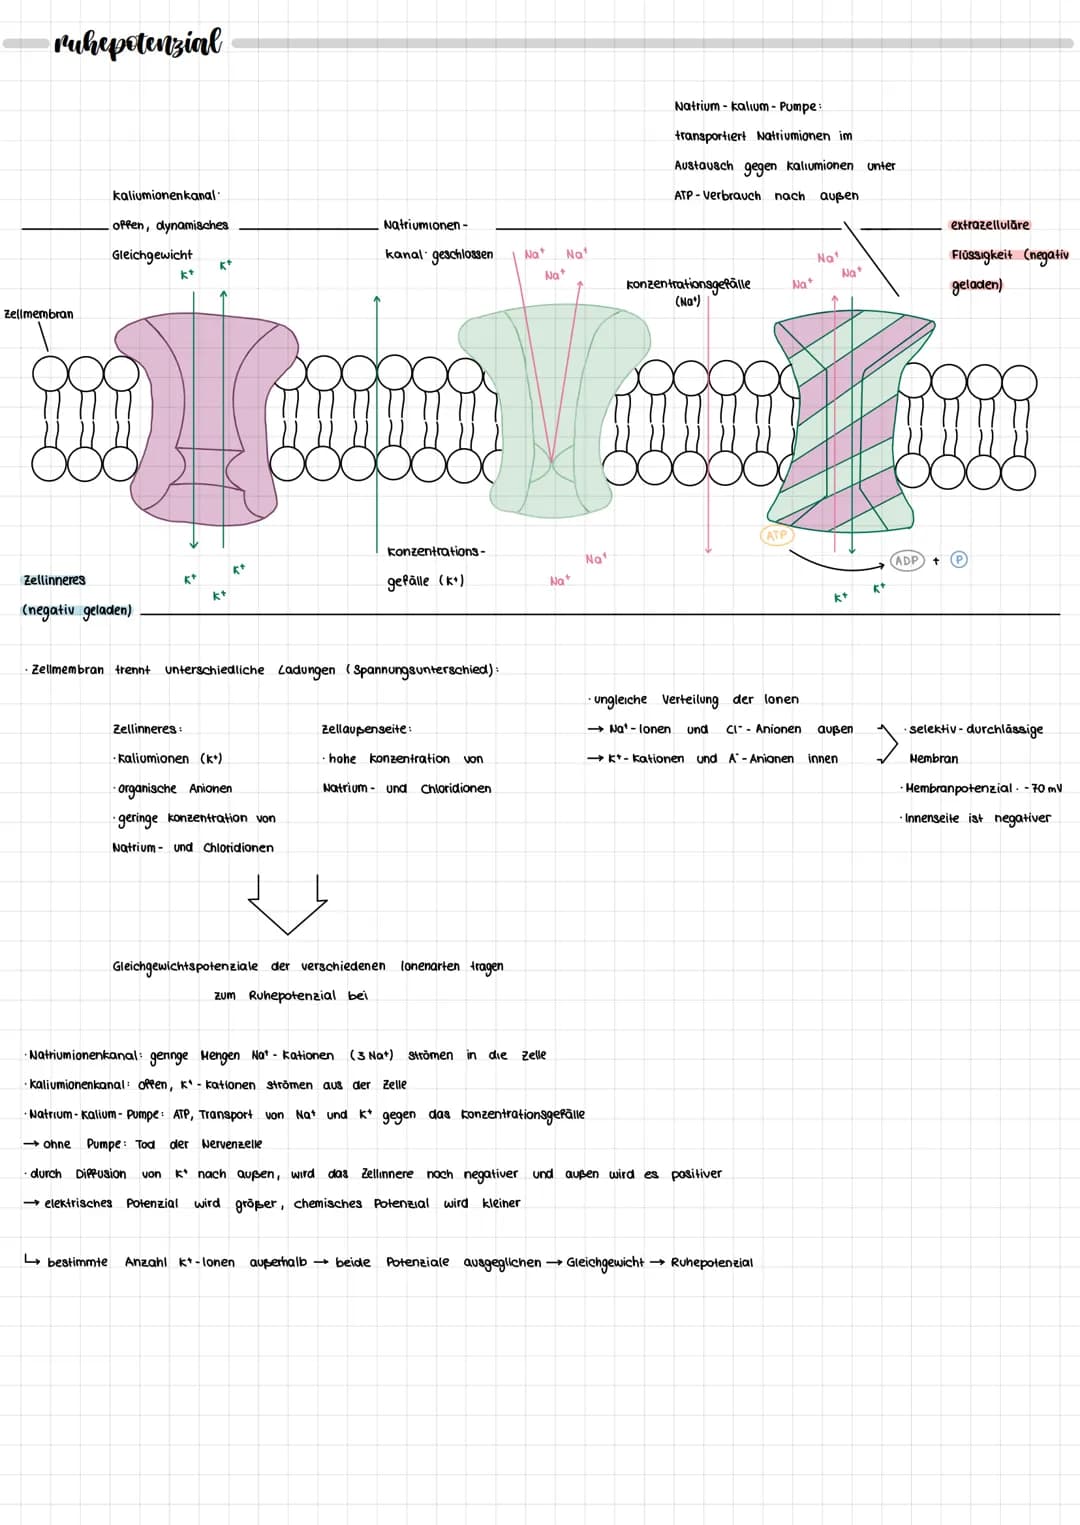 ruhepotenzial
Natrium-Kalium-Pumpe:
transportiert Natriumionen im
Austausch gegen Kaliumionen unter
ATP-Verbrauch nach außen
Kaliumionenkanal:
offen, dynamisches
Gleichgewicht
Natriumionen-
kanal: geschlossen
extrazelluläre
Flüssigkeit (negativ
geladen)
K+ K+
Na+ Na+
Na+
Konzentrationsgefälle
(Na+)
Na+
Na+ Na+
Zellmembran
ATP
ADP + P
Konzentrations-
gefälle (K+)
Na+
Na+
K+ K+
K+
K+ K+
Zellinneres
(negativ geladen)
· Zellmembran trennt unterschiedliche Ladungen (Spannungsunterschied):
Zellinneres:
· Kaliumionen (K+)
· organische Anionen
· geringe Konzentration von
Natrium- und Chloridionen
Zellaußenseite:
· hohe Konzentration von
Natrium- und Chloridionen
· ungleiche Verteilung der Ionen
→ Na+-Ionen und Cl--Anionen außen
→ K+-Kationen und A--Anionen innen
· selektiv-durchlässige
Membran
· Membranpotenzial: -70 mV
· Innenseite ist negativer
Gleichgewichtspotenziale der verschiedenen Ionenarten tragen
zum Ruhepotenzial bei
· Natriumionenkanal: geringe Mengen Na+-Kationen (3 Na+) strömen in die Zelle
· Kaliumionenkanal: offen, K+-Kationen strömen aus der Zelle
· Natrium-Kalium-Pumpe: ATP, Transport von Na+ und K+ gegen das Konzentrationsgefälle
→ ohne Pumpe: Tod der Nervenzelle
· durch Diffusion von K+ nach außen, wird das Zellinnere noch negativer und außen wird es positiver
→ elektrisches Potenzial wird größer, chemisches Potenzial wird kleiner
↳ bestimmte Anzahl K+-Ionen außerhalb → beide Potenziale ausgeglichen → Gleichgewicht → Ruhepotenzial